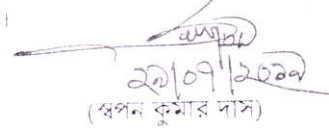 ২৯/০৭/২০১৯
(স্বপন কুমার দাস)